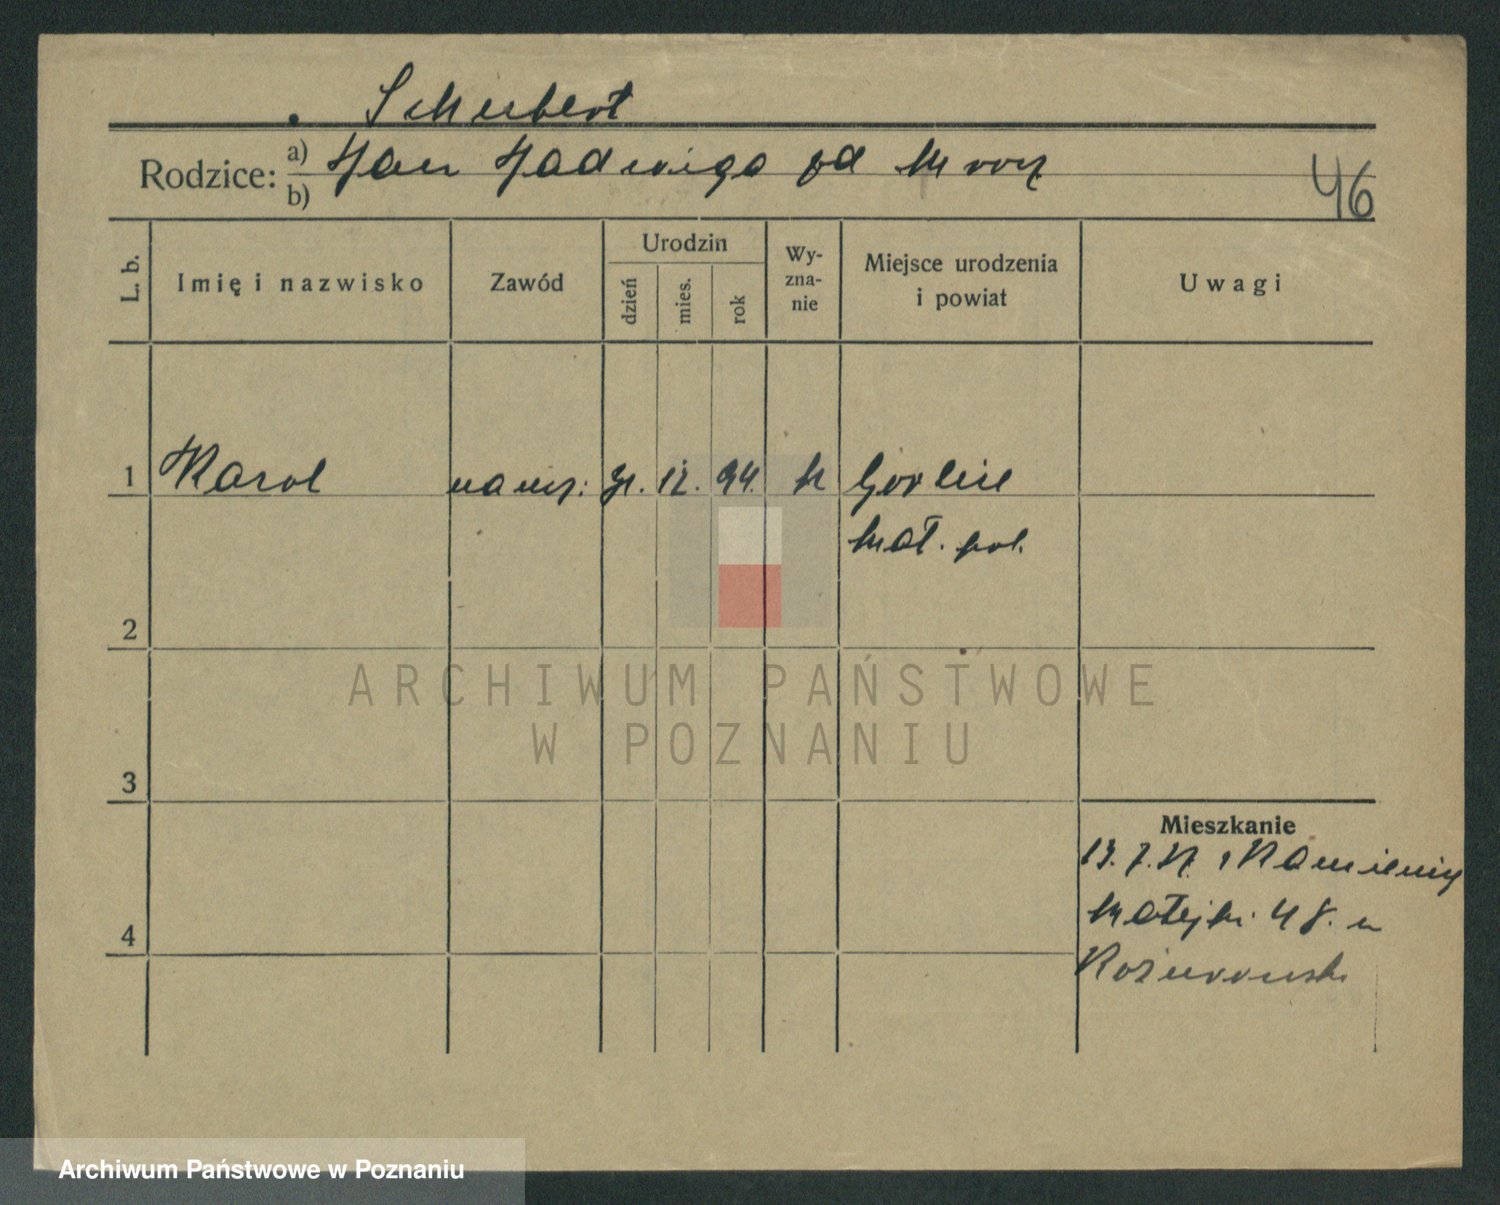 Schubert
Rodzice: a) Jan Jadwiga od Mroz
b)
46
L. b.
Imię i nazwisko
Zawód
Urodzin
dzień
mies.
rok
Wy-
zna-
nie
Miejsce urodzenia
i powiat
Uwagi
1 Karol naucz: 12. 94. k Gorlice
Mał. pol.
2
3
4
Mieszkanie
Matejki 48. u
ARCHIWUM PAŃSTWOWE
W POZNANIU
Archiwum Państwowe w Poznaniu